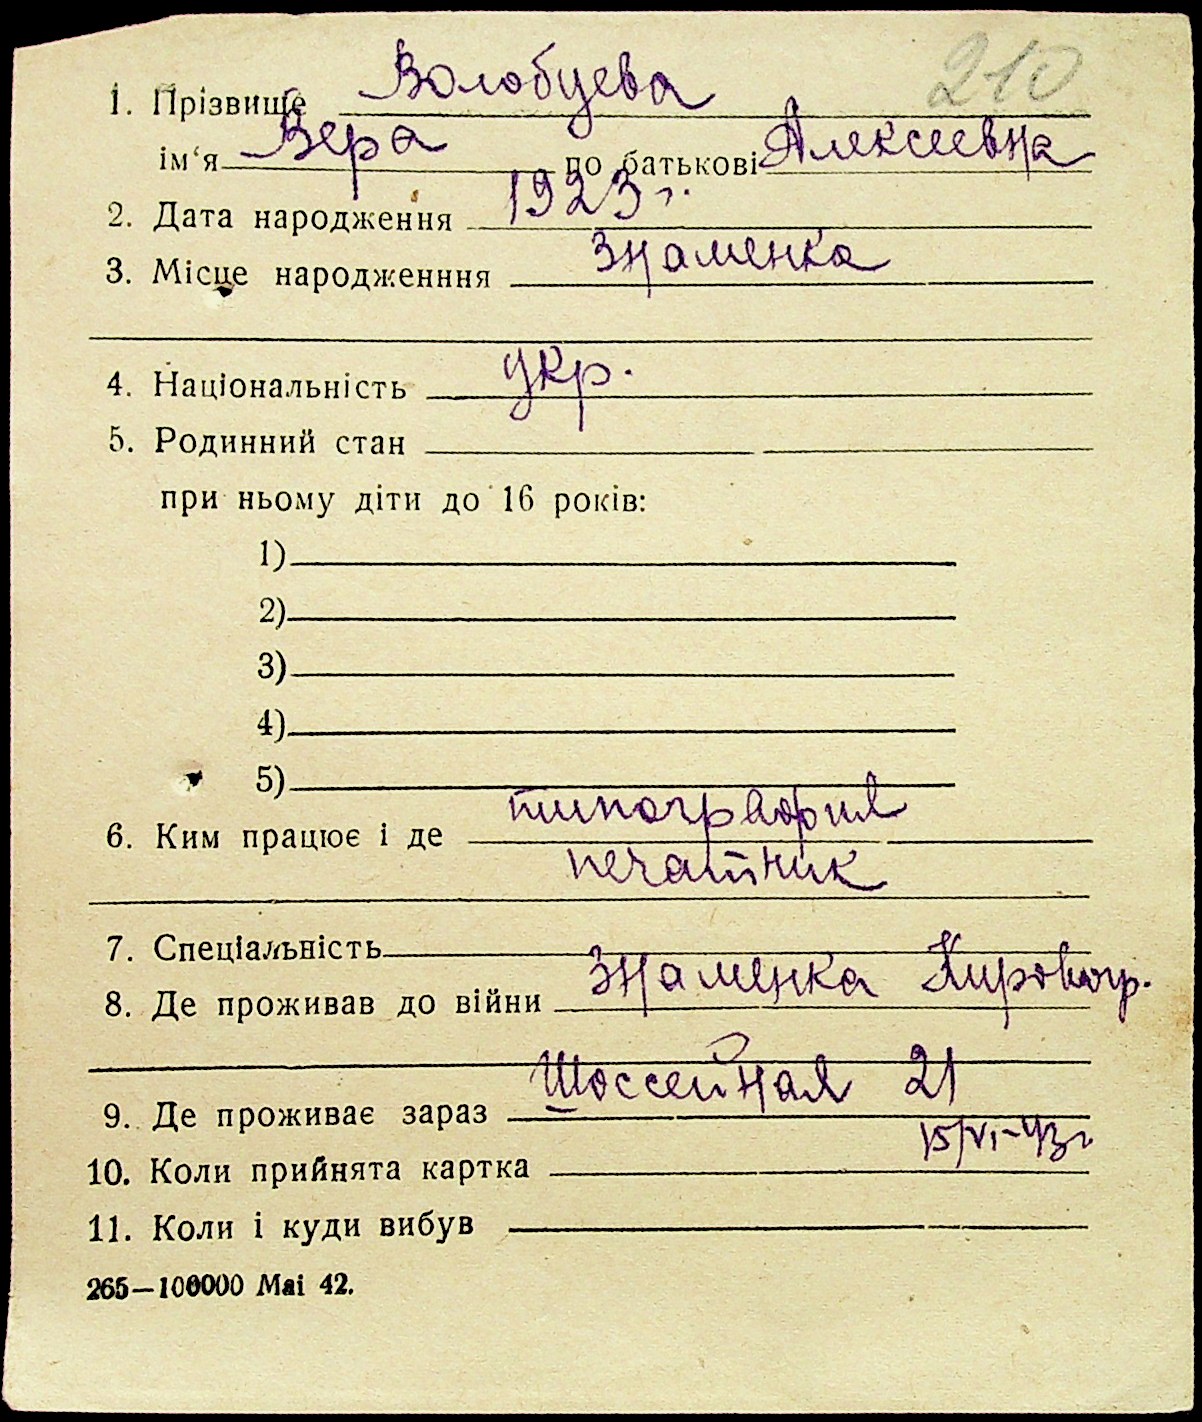 210
1. Прізвище Волобуева
ім‘я Вера по батькові Алексеевна
2. Дата народження 1923 г.
3. Місце народженння Знаменка
4. Національність укр.
5. Родинний стан
при ньому діти до 16 років:
1)
2)
3)
4)
5)
6. Ким працює і де типография
печатник
7. Спеціальність
8. Де проживав до війни Знаменка Кировогр.
9. Де проживає зараз Шоссейная 21
10. Коли прийнята картка 15/VI-43г
11. Коли і куди вибув
265—100000 Mai 42.